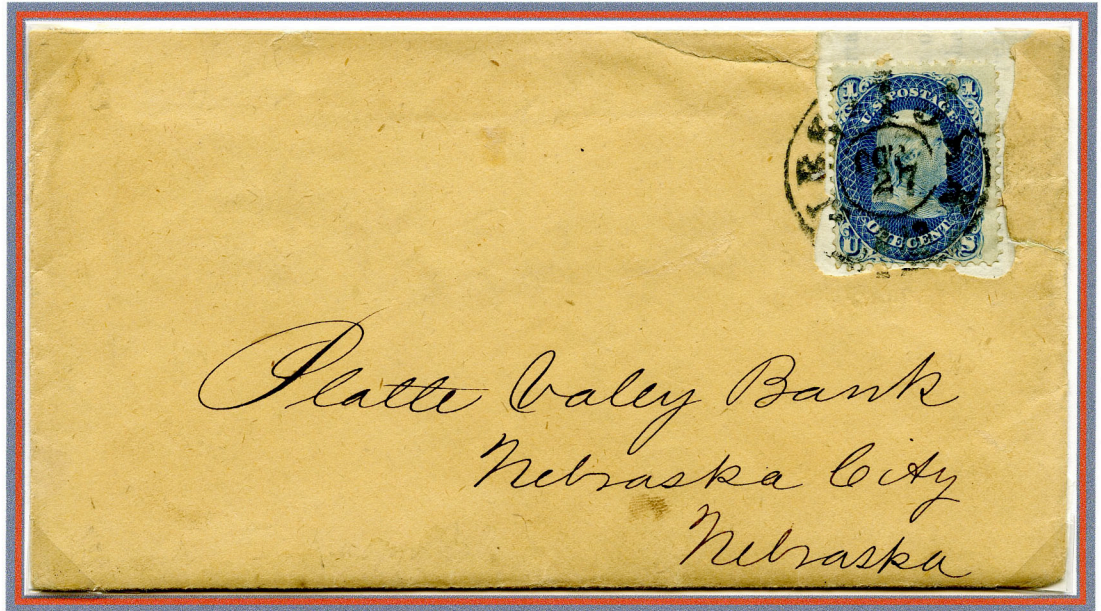 1 1
U.S. POSTAGE
27
ONE CENT
U S
Platte Valey Bank
Nebraska City
Nebraska